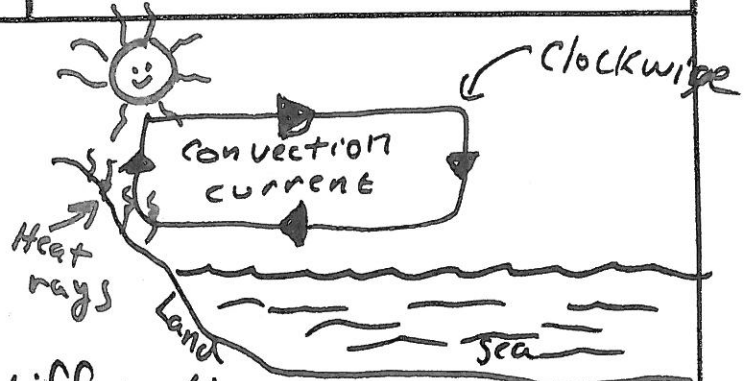 Clockwise
convection
current
Heat
rays
Land
sea